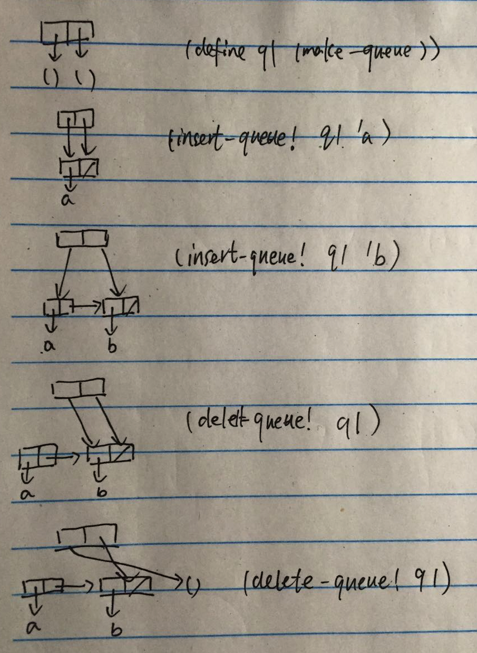 () ()
(define q1 (make-queue))
(insert-queue! q1 'a)
a
(insert-queue! q1 'b)
a b
(delet-queue! q1)
a b
() (delete-queue! q1)
a b